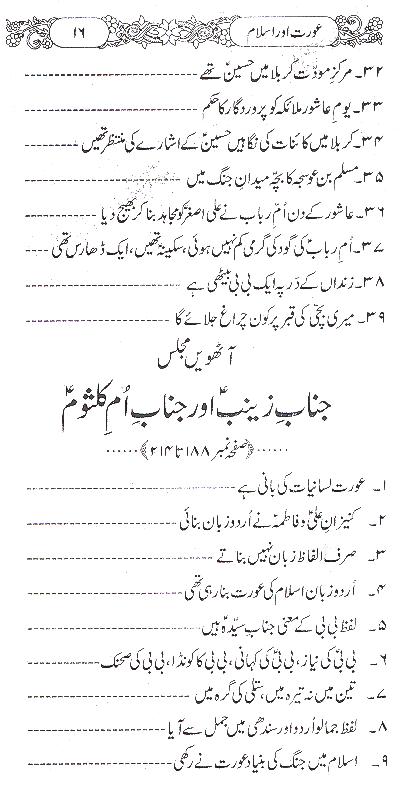 عورت اور اسلام
۱۶
۳۲۔ مرکزِ مودّت کربلا میں حسینؑ تھے
۳۳۔ یومِ عاشور ملائکہ کو پروردگار کا حکم
۳۴۔ کربلا میں کائنات کی نگاہیں حسینؑ کے اشارے کی منتظر تھیں
۳۵۔ مسلم بن عوسجہ کا بچّہ میدانِ جنگ میں
۳۶۔ عاشور کے دن اُمِ ربابؑ نے علی اصغرؑ کو مجاہد بنا کر بھیج دیا
۳۷۔ اُمِ ربابؑ کی گود کی گرمی کم نہیں ہوئی، سکینہؑ تھیں، ایک ڈھارس تھی
۳۸۔ زنداں کے در پہ ایک بی بی بیٹھی ہے
۳۹۔ میری بچّی کی قبر پر کون چراغ جلائے گا
آٹھویں مجلس
جنابِ زینبؑ اور جنابِ اُمِ کلثومؑ
......﴿صفحہ نمبر ۱۸۸ تا ۲۱۴﴾......
۱۔ عورت لسانیات کی بانی ہے
۲۔ کنیزانِ علیؑ و فاطمہؑ نے اُردو زبان بنائی
۳۔ صرف الفاظ زبان نہیں بناتے
۴۔ اُردو زبان اسلام کی عورت بنا رہی تھی
۵۔ لفظ بی بی کے معنی جنابِ سیّدہؑ ہیں
۶۔ بی بیؑ کی نیاز، بی بیؑ کی کہانی، بی بی کا کونڈا، بی بی کی صحنک
۷۔ تین میں نہ تیرہ میں، ستلی کی گرہ میں
۸۔ لفظ جمالو اُردو اور سندھی میں جمل سے آیا
۹۔ اسلام میں جنگ کی بنیاد عورت نے رکھی